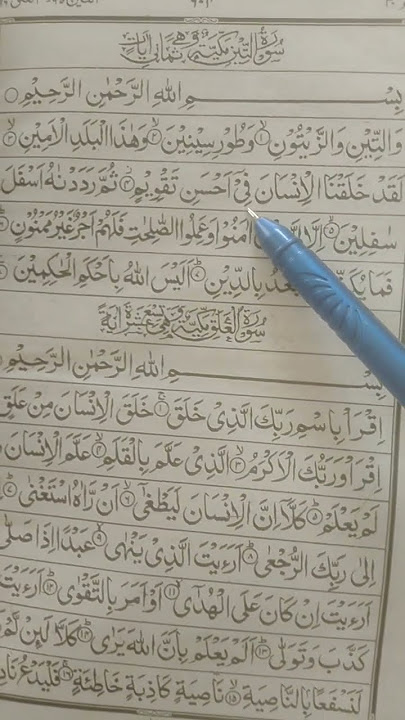 سُوْرَةُ التِّيْنِ مَكِّيَّةٌ وَّهِيَ ثَمَانِيْ اٰيَاتٍ
بِسْمِ اللهِ الرَّحْمٰنِ الرَّحِيْمِ
وَالتِّيْنِ وَالزَّيْتُوْنِ ۙ۱ وَطُوْرِ سِيْنِيْنَ ۙ۲ وَهٰذَا الْبَلَدِ الْاَمِيْنِ ۙ۳
لَقَدْ خَلَقْنَا الْاِنْسَانَ فِيْٓ اَحْسَنِ تَقْوِيْمٍ ؗ۴ ثُمَّ رَدَدْنٰهُ اَسْفَلَ
سٰفِلِيْنَ ۙ۵ اِلَّا اٰمَنُوْا وَعَمِلُوا الصّٰلِحٰتِ فَلَهُمْ اَجْرٌ غَيْرُ مَمْنُوْنٍ
فَمَا بَعْدُ بِالدِّيْنِ ؕ۷ اَلَيْسَ اللهُ بِاَحْكَمِ الْحٰكِمِيْنَ
سُوْرَةُ الْعَلَقِ مَكِّيَّةٌ وَّهِيَ تِسْعَ عَشْرَةَ اٰيَةً
بِسْمِ اللهِ الرَّحْمٰنِ الرَّحِيْمِ
اِقْرَاْ بِاسْمِ رَبِّكَ الَّذِيْ خَلَقَ ۚ۱ خَلَقَ الْاِنْسَانَ مِنْ عَلَقٍ
اِقْرَاْ وَرَبُّكَ الْاَكْرَمُ ۙ۳ الَّذِيْ عَلَّمَ بِالْقَلَمِ ۙ۴ عَلَّمَ الْاِنْسَانَ
لَمْ يَعْلَمْ ؕ۵ كَلَّآ اِنَّ الْاِنْسَانَ لَيَطْغٰٓى ۙ۶ اَنْ رَّاٰهُ اسْتَغْنٰى ؕ۷
اِلٰى رَبِّكَ الرُّجْعٰى ؕ۸ اَرَءَيْتَ الَّذِيْ يَنْهٰى ۙ۹ عَبْدًا اِذَا صَلّٰى
اَرَءَيْتَ اِنْ كَانَ عَلَى الْهُدٰٓى ۙ۱۱ اَوْ اَمَرَ بِالتَّقْوٰى ؕ۱۲ اَرَءَيْتَ
كَذَّبَ وَتَوَلّٰى ؕ۱۳ اَلَمْ يَعْلَمْ بِاَنَّ اللهَ يَرٰى ؕ۱۴ كَلَّا لَئِنْ لَّمْ
لَنَسْفَعًۢا بِالنَّاصِيَةِ ۙ۱۵ نَاصِيَةٍ كَاذِبَةٍ خَاطِئَةٍ ۚ۱۶ فَلْيَدْعُ